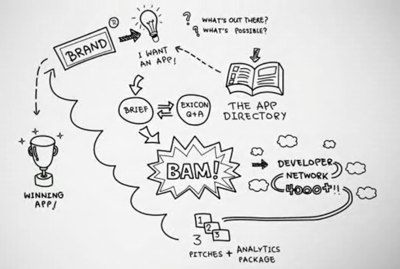 BRAND
®
I WANT
AN APP!
? WHAT'S OUT THERE?
? WHAT'S POSSIBLE?
THE APP
DIRECTORY
BRIEF
EXICON
Q+A
BAM!
DEVELOPER
NETWORK
4000+!!
1
2
3
3
PITCHES + ANALYTICS
PACKAGE
WINNING
APP!